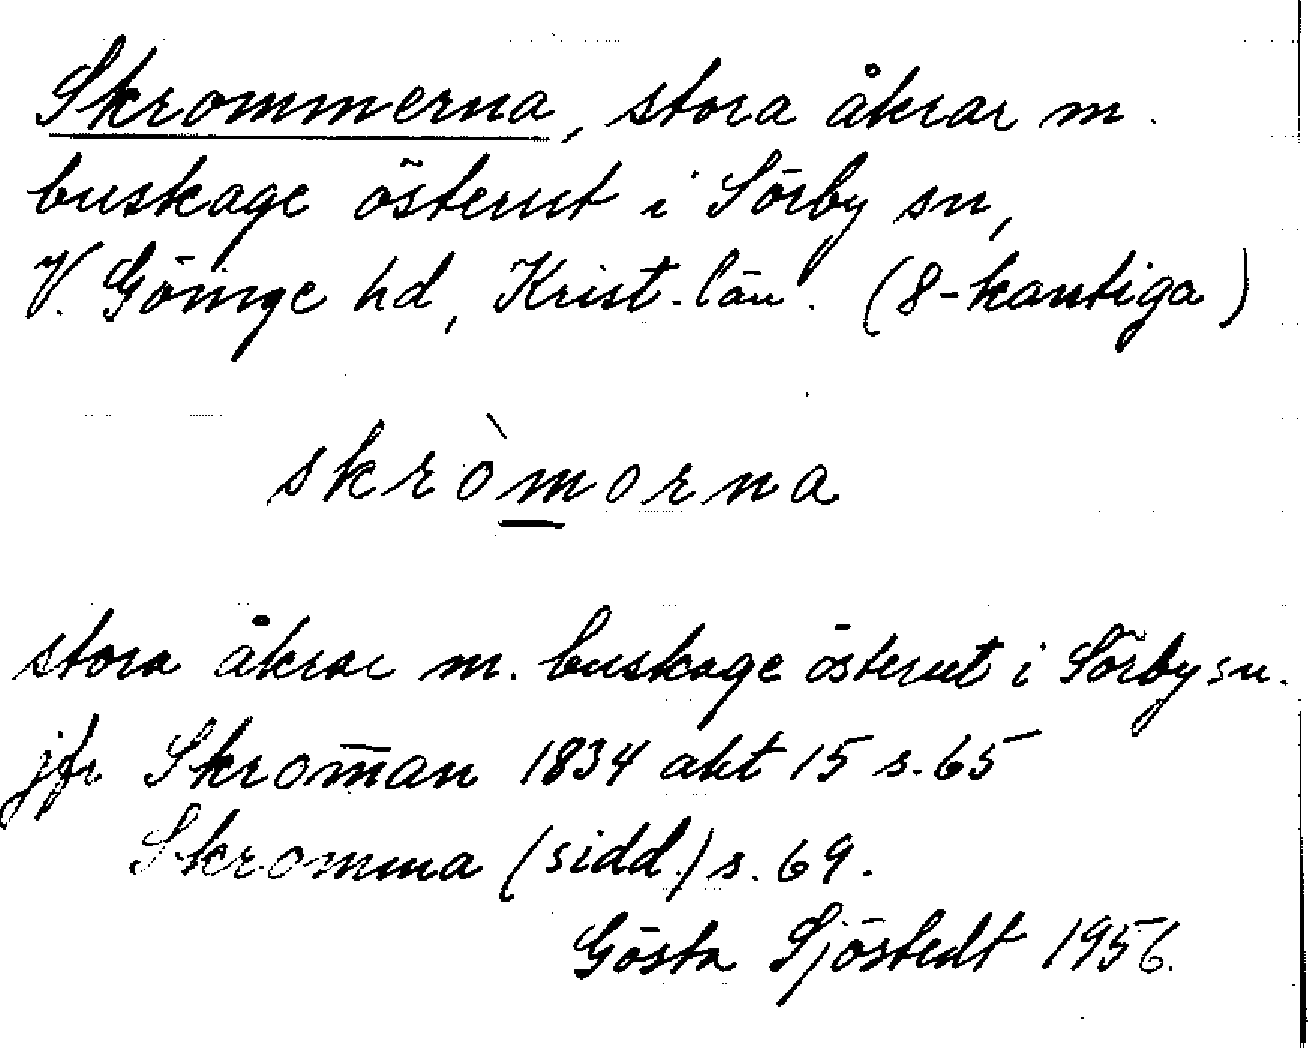 Skrommerna, stora åkrar m.
buskage österut i Sörby sn,
V. Göinge hd, Krist. län. (8-kantiga)
skròm̲orna
stora åkrar m. buskage österut i Sörby sn.
jfr Skrom̅an 1834 akt 15 s. 65
Skromma (sidd.) s. 69.
Gösta Sjöstedt 1956.